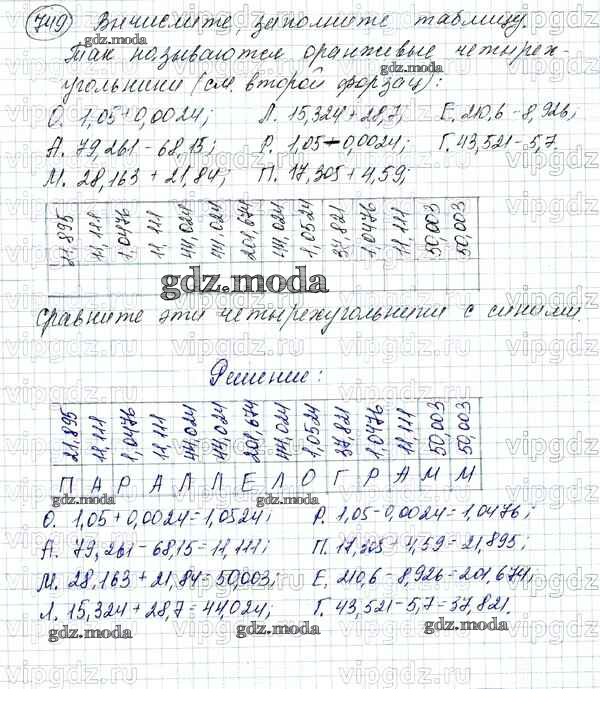 749 Вычислите, заполните таблицу.
Так называются оранжевые четырех-
угольники (см. второй форзац):
О. 1,05+0,0024; Л. 15,324+28,7; Е. 210,6-8,926;
А. 79,261-68,15; Р. 1,05-0,0024; Г. 43,521-5,7
М. 28,163+21,84; П. 17,305+4,59;
21,895 11,111 1,0476 11,111 44,024 44,024 201,674 44,024 1,0524 37,821 1,0476 11,111 50,003 50,003
gdz.moda
сравните эти четырехугольники с синими.
Решение:
21,895 11,111 1,0476 11,111 44,024 44,024 201,674 44,024 1,0524 37,821 1,0476 11,111 50,003 50,003
П А Р А Л Л Е Л О Г Р А М М
О. 1,05+0,0024=1,0524; Р. 1,05-0,0024=1,0476;
А. 79,261-68,15=11,111; П. 17,305+4,59=21,895;
М. 28,163+21,84=50,003; Е. 210,6-8,926=201,674;
Л. 15,324+28,7=44,024; Г. 43,521-5,7=37,821.
gdz.moda